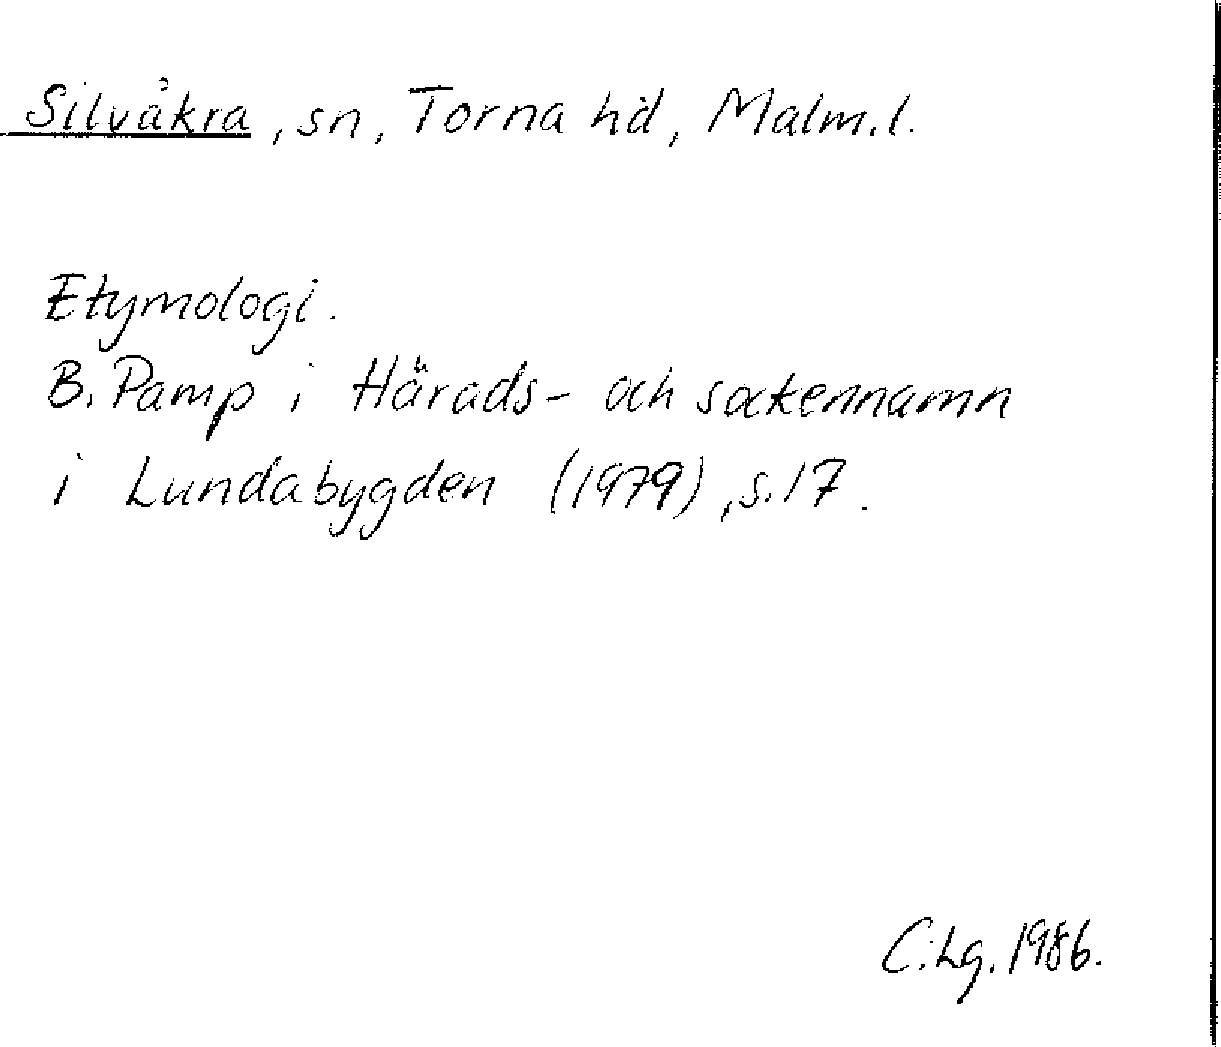 Silvåkra, sn, Torna hd, Malm.l.
Etymologi.
B. Pamp i Härads- och sockennamn
i Lundabygden (1979), s. 17.
C:Lg. 1986.